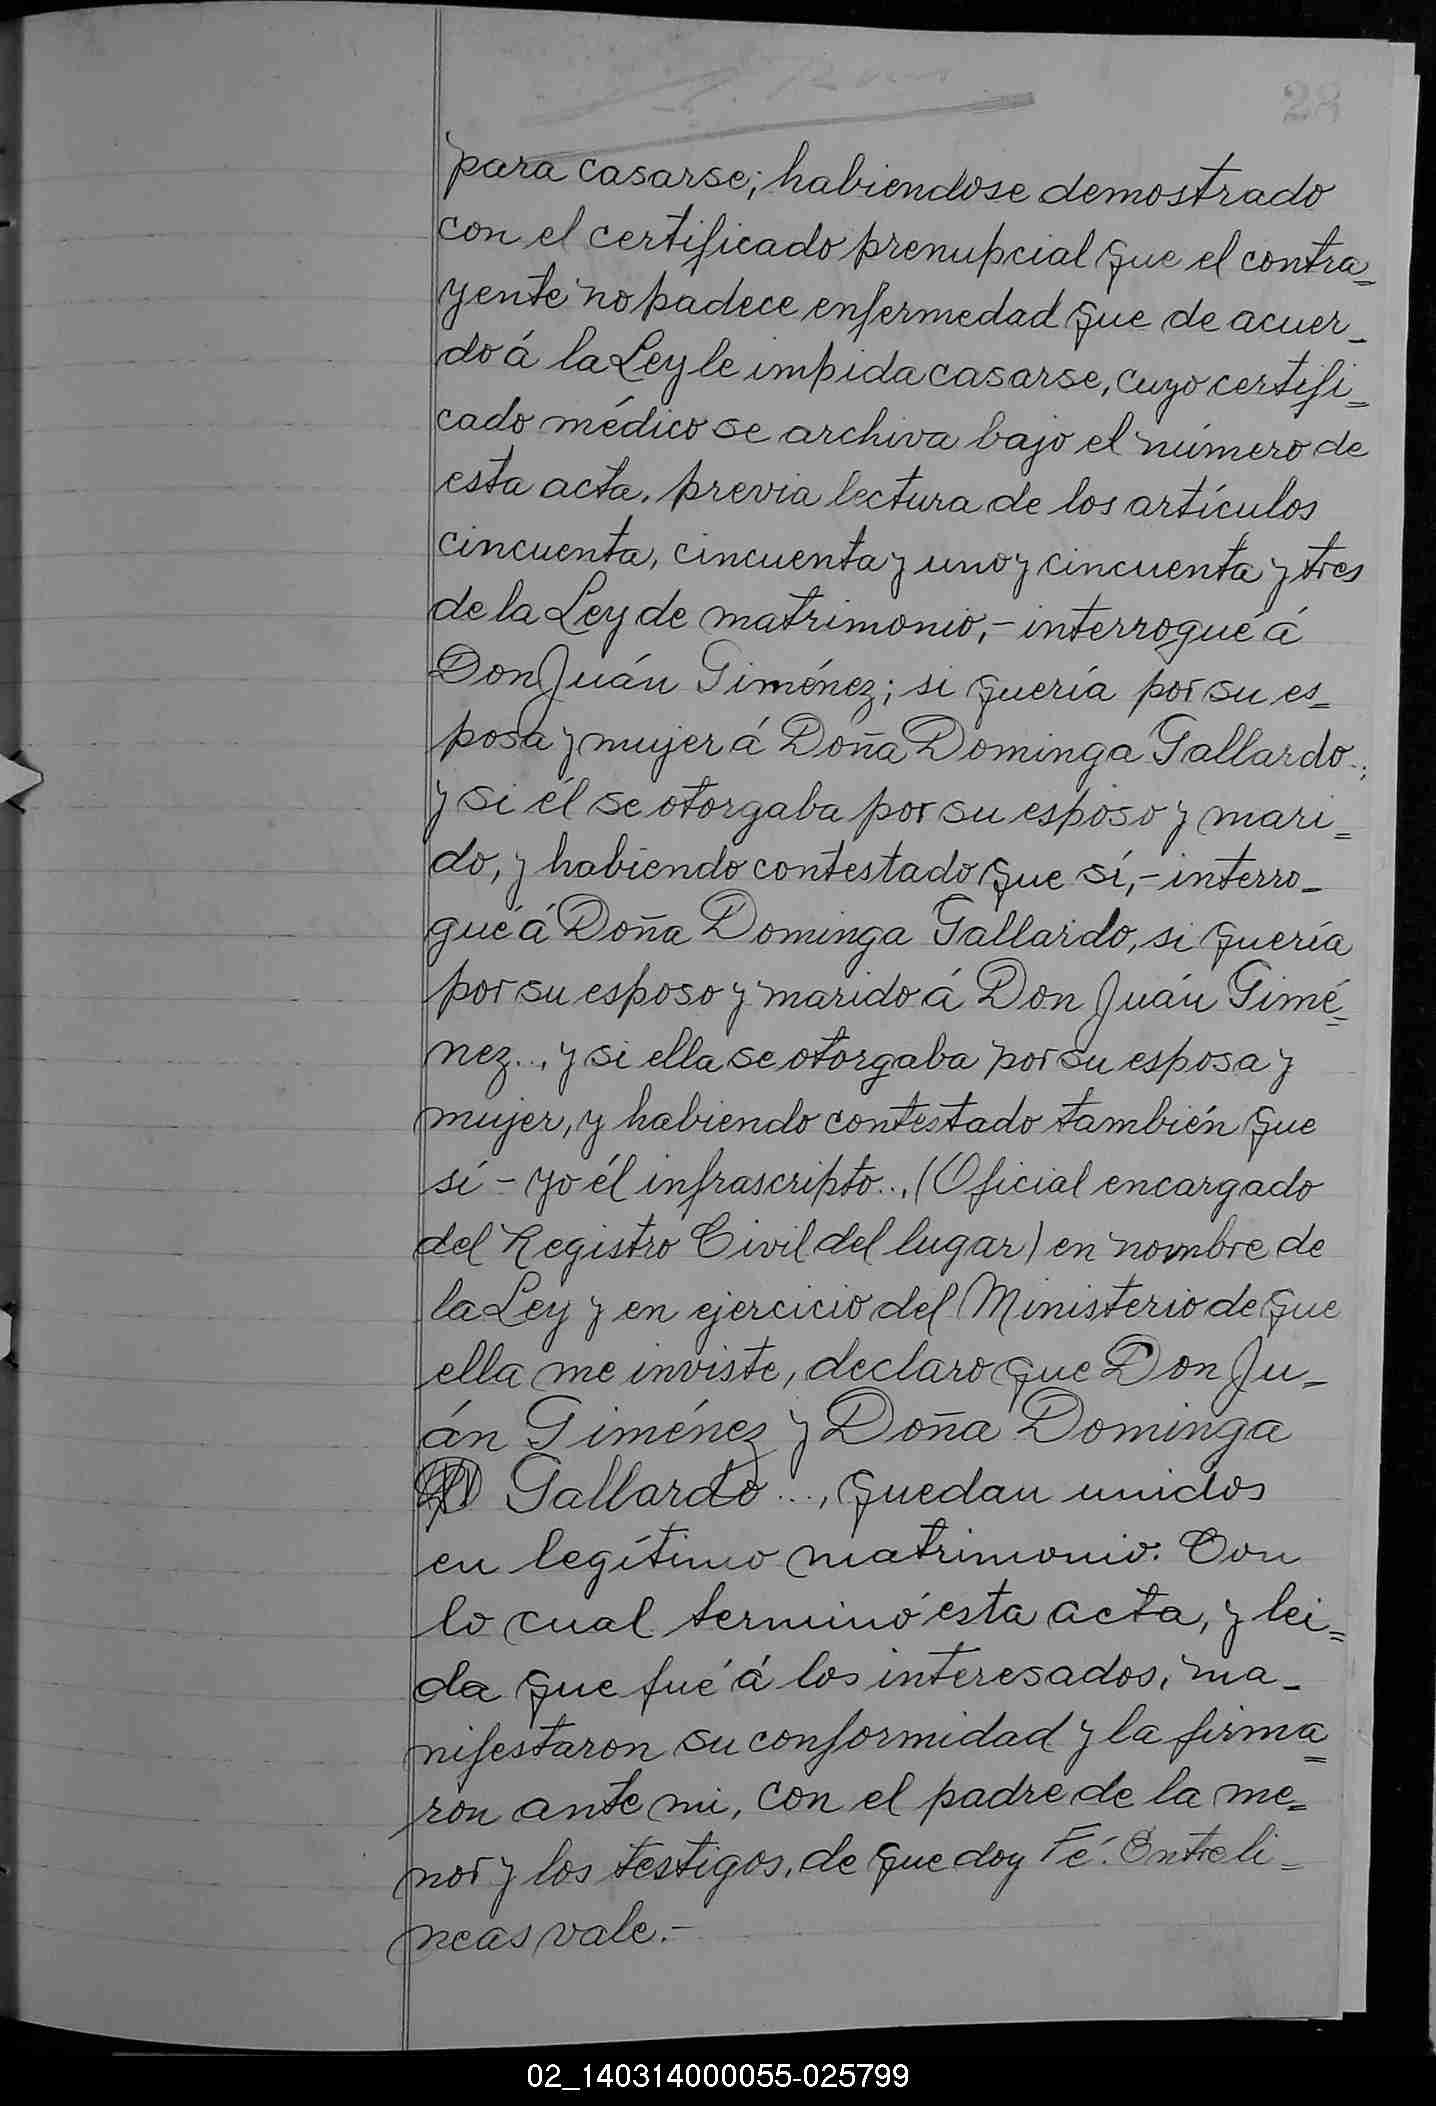 28
para casarse; habiendose demostrado
con el certificado prenupcial que el contra=
yente no padece enfermedad que de acuer_
do á la Ley le impida casarse, cuyo certifi=
cado médico se archiva bajo el número de
esta acta. previa lectura de los artículos
cincuenta, cincuenta y uno y cincuenta y tres
de la Ley de matrimonio,- interrogué á
Don Juán Giménez; si quería por su es=
posa y mujer á Doña Dominga Gallardo..;
y si él se otorgaba por su esposo y mari=
do, y habiendo contestado que sí,- interro_
gué á Doña Dominga Gallardo, si quería
por su esposo y marido á Don Juán Gimé=
nez..., y si ella se otorgaba por su esposa y
mujer, y habiendo contestado también que
sí - yo él infrascripto.., (Oficial encargado
del Registro Civil del lugar) en nombre de
la Ley y en ejercicio del Ministerio de que
ella me inviste, declaro que Don Ju_
án Giménez y Doña Dominga
Gallardo..., quedan unidos
en legítimo matrimonio. Con
lo cual terminó esta acta, y lei=
da que fué á los interesados, ma_
nifestaron su conformidad y la firma=
ron ante mi, con el padre de la me=
nor y los testigos, de que doy Fé. Entreli=
neas vale.-
02_140314000055-025799